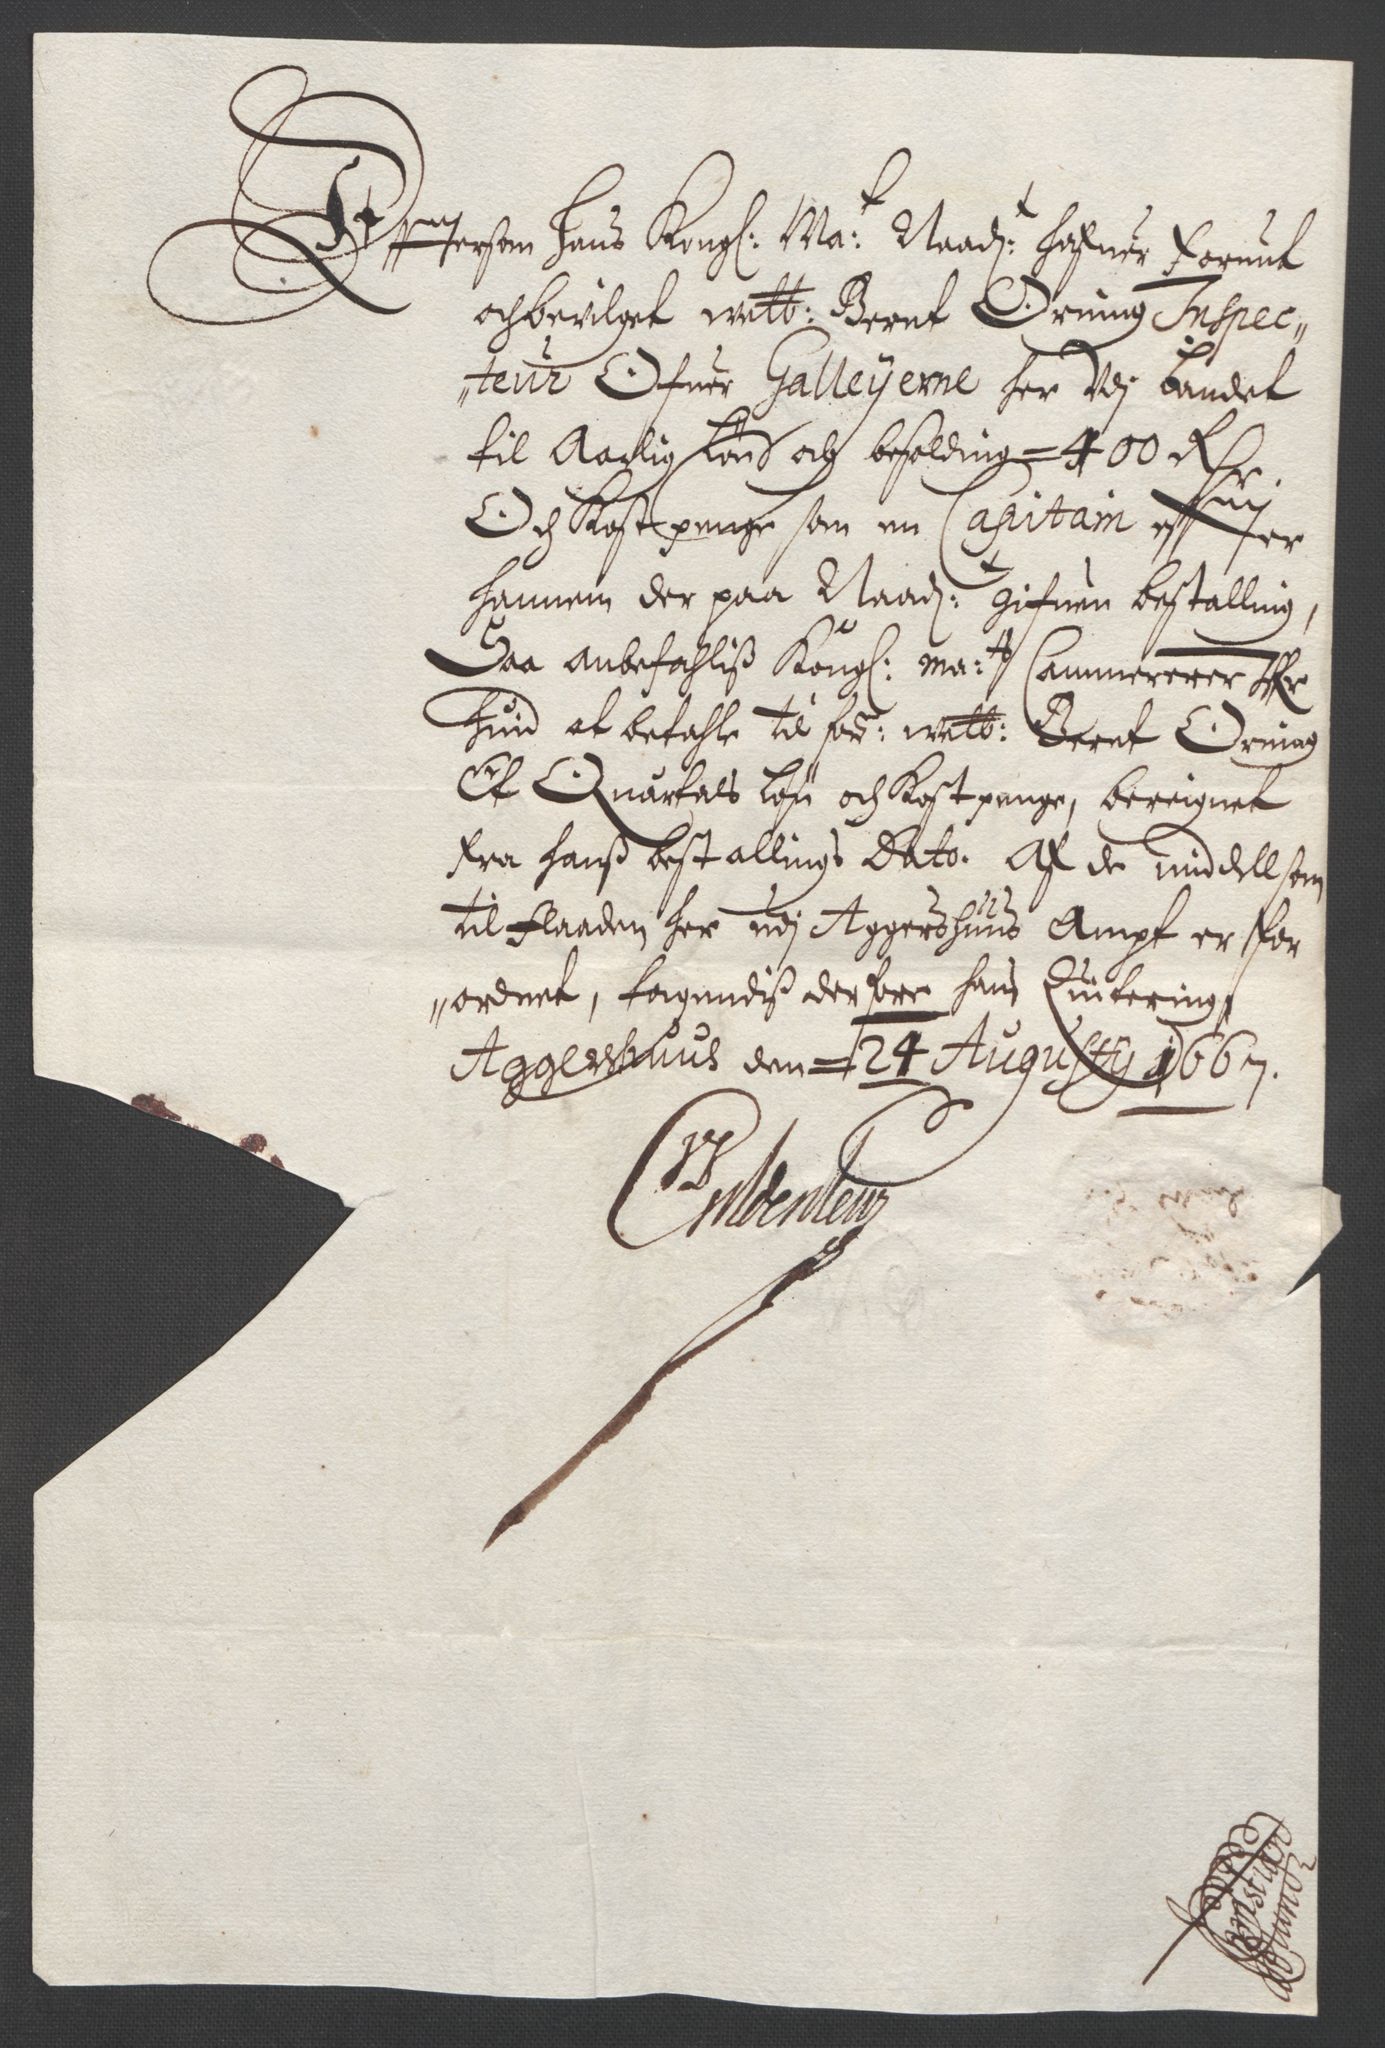 Effttersom Hans Kongl: Ma:t Naad:t hafuer Forunt
och bevilget welb: Bernt Orning Inspec„
„teur Ofuer Galleyerne her Vdj Landet
til Aarlig Løn och besolding = 400 Rdr
Och Kostpenge som en Capitain effter
hannem der paa Naad:t gifuen bestalling,
Daa anbefahliß Kongl: Ma:ts Cammererer Hr
Huid at betahle til for: welb: Bernt Orning
Et Quartals Løn och Kostpenge, bereignet
fra Hanß bestallings Dato. Af de middell som
til Flaaden her udj Aggershuus Ampt er for
„ordnet, tagendiß derfore hans Quitering,
Aggershuus den = 24 Augustij 1667.
Gyldenleu